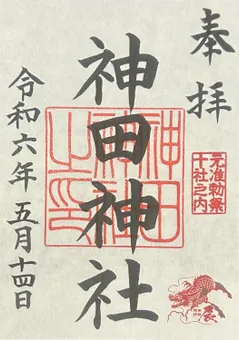 奉拝
元准勅祭
十社之内
神田神社
神田
神社
之印
令和六年 五月十四日